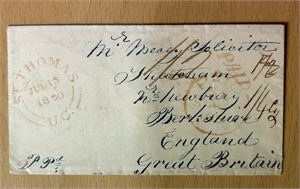 ST. THOMAS
JUL 15
1850
U.C.
Mr Messy Solicitor
Thatcham
Nr Newbury
Berkshire
England
Great Britain
Paid